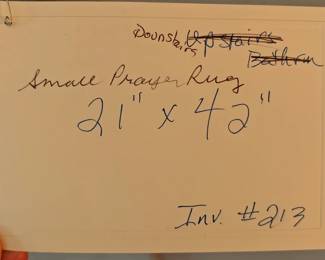 Downstairs Upstairs
Bathrm
Small Prayer Rug
21" x 42"
Inv. #213